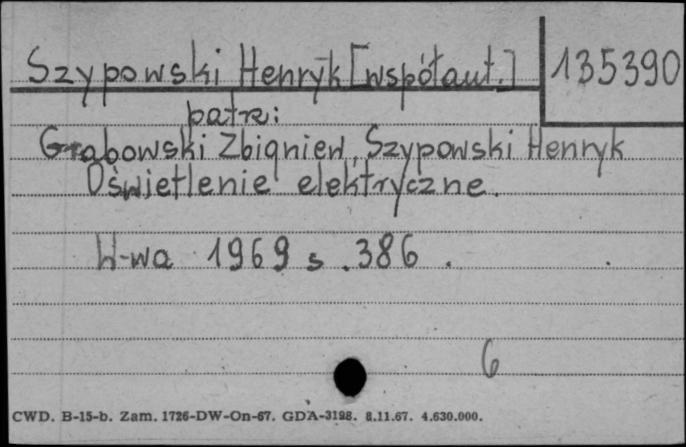 Szypowski Henryk [współaut.] 135390
patrz:
Grabowski Zbigniew, Szypowski Henryk
Oświetlenie elektryczne.
W-wa 1969 s. 386.
6
CWD. B-15-b. Zam. 1726-DW-On-67. GDA-3198. 8.11.67. 4.630.000.